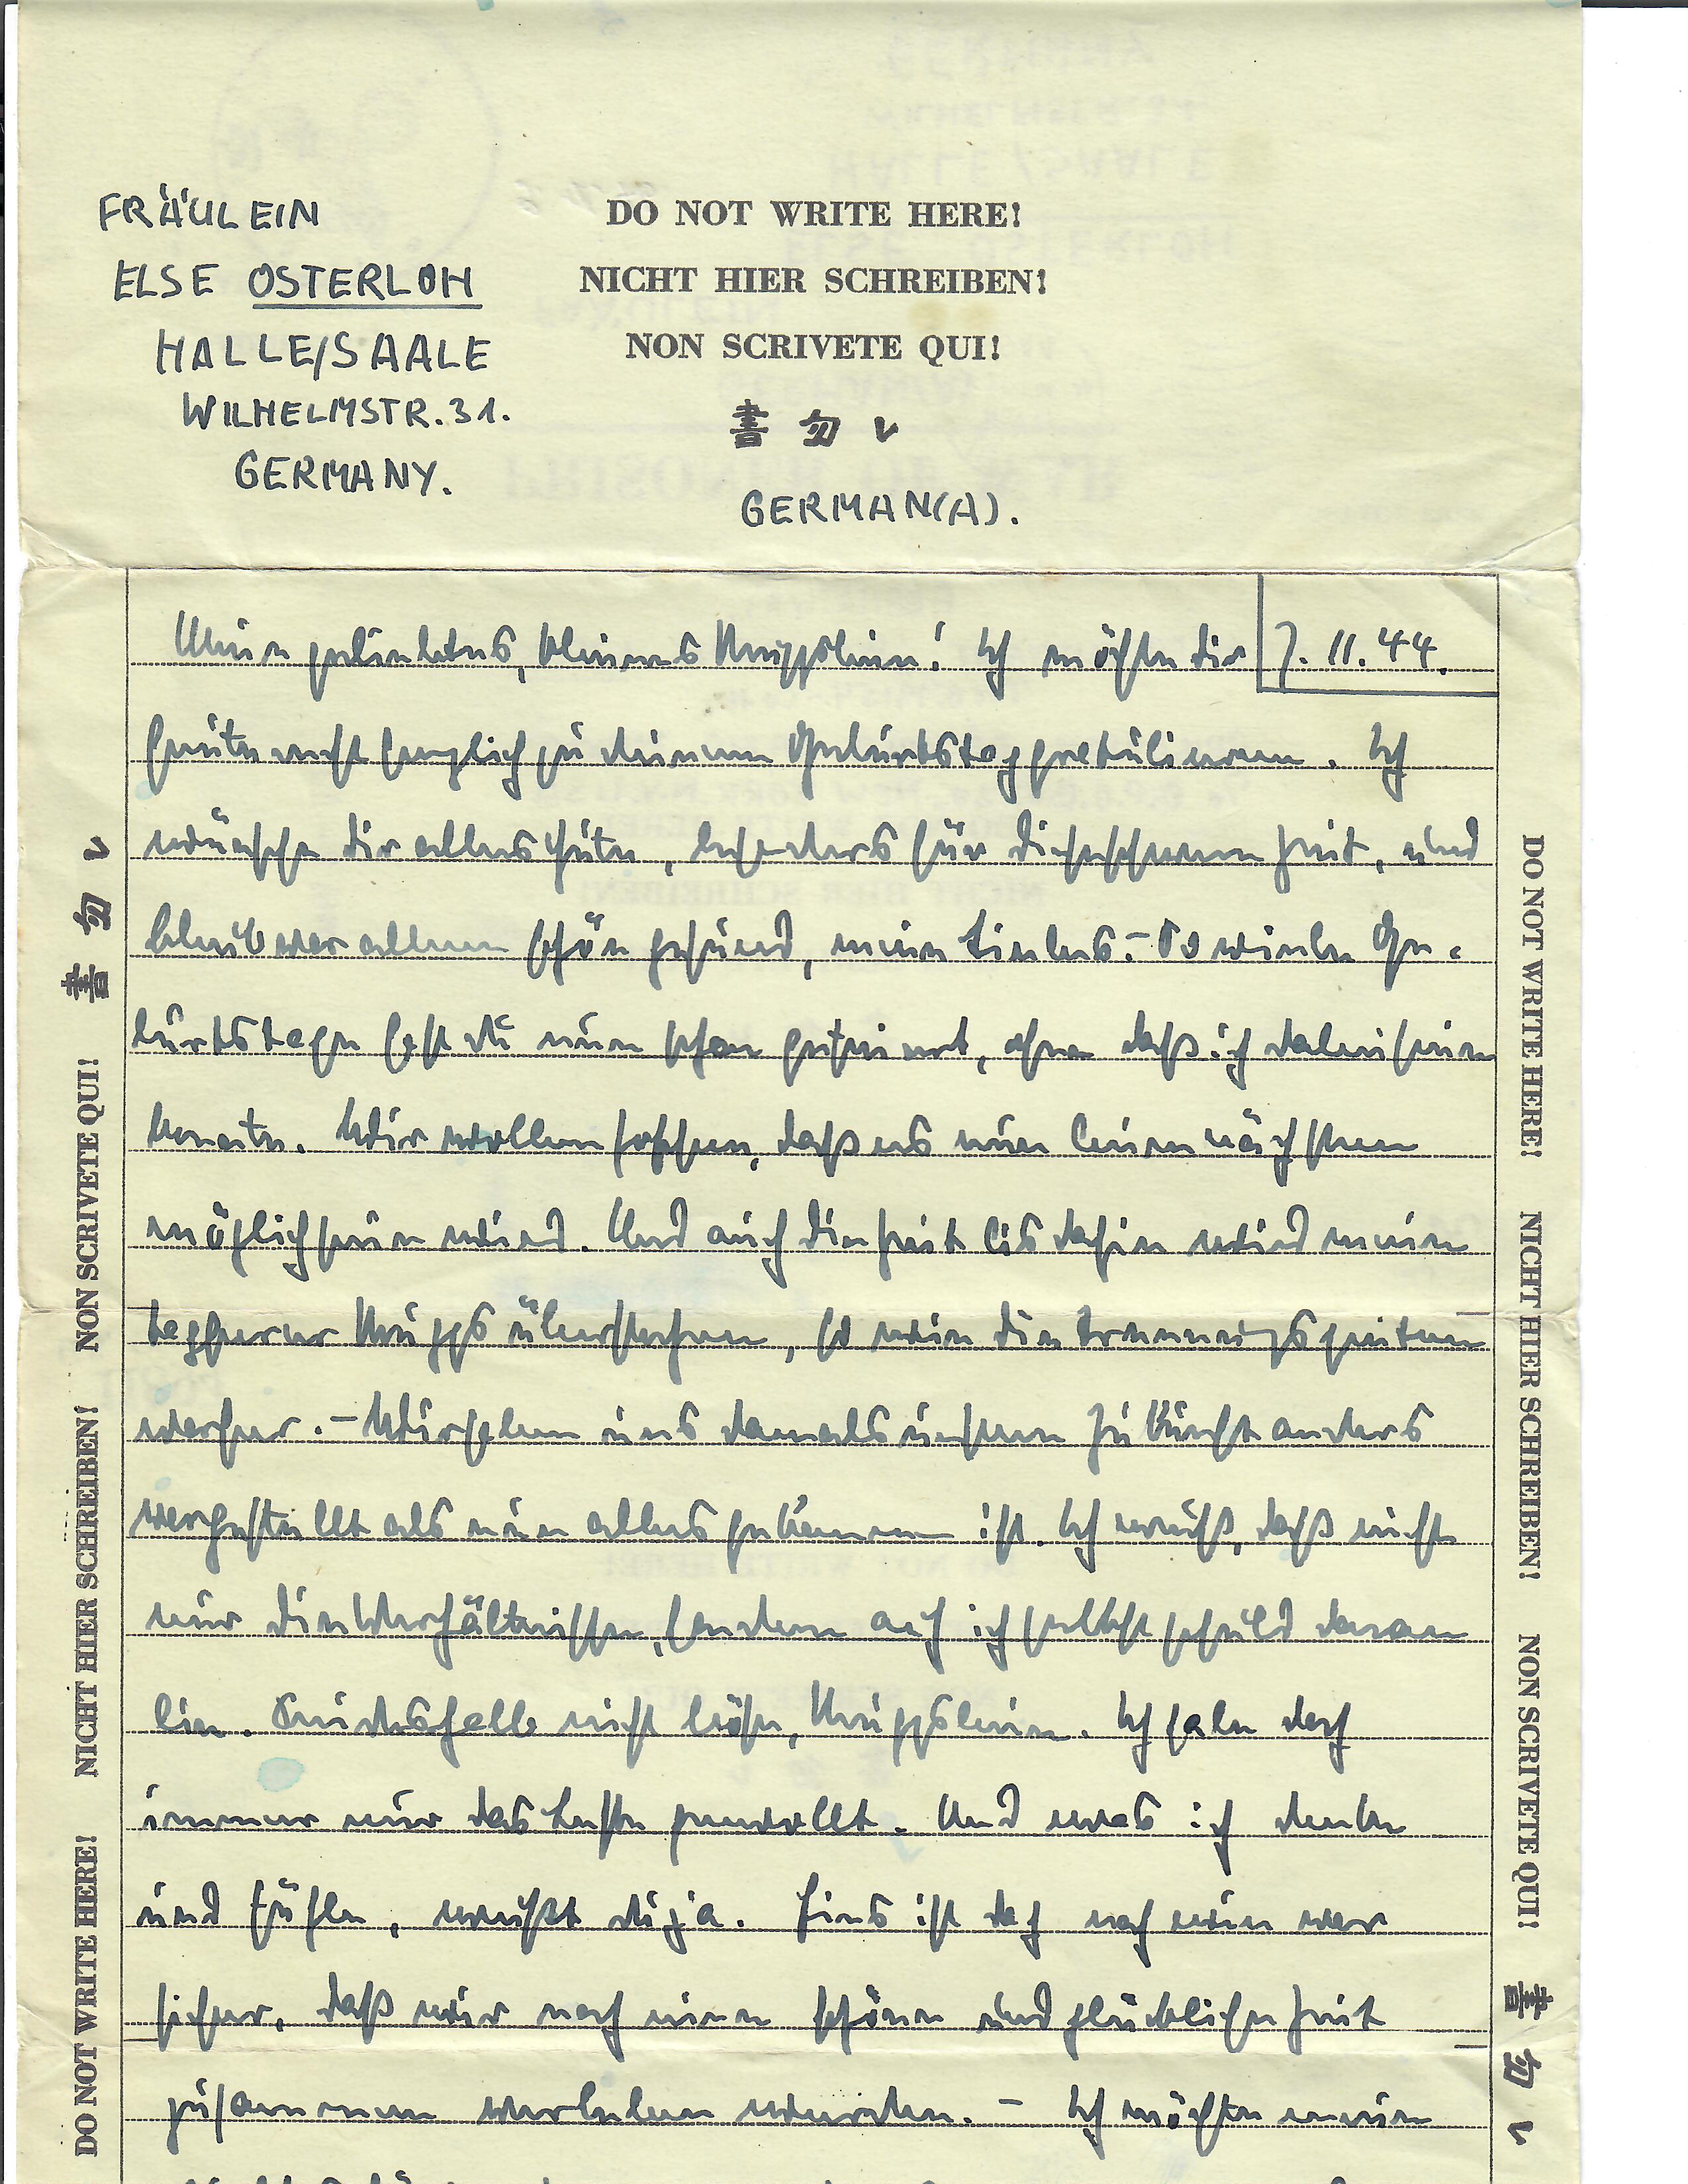 FRÄULEIN
ELSE OSTERLOH
HALLE/SAALE
WILHELMSTR. 31.
GERMANY.
DO NOT WRITE HERE!
NICHT HIER SCHREIBEN!
NON SCRIVETE QUI!
書 勿 ㇾ
GERMAN(A).
7. 11. 44.
Mein geliebtes, kleines Knuppslein! Ich möchte dir
heute recht herzlich zu deinem Geburtstag gratulieren. Ich
wünsche dir alles Gute, besonders für die schwere Zeit, und
bleib vor allem schön gesund, mein Liebes. – So viele Ge-
burtstage hast du nun schon gefeiert, ohne daß ich dabei sein
konnte. Wir wollen hoffen, daß es nun beim nächsten
möglich sein wird. Und auch die Zeit bis dahin wird mein
tapferer Knupps überstehen, so wie die Trennungszeiten
vorher. – Wir haben uns damals unsere Zukunft anders
vorgestellt als nun alles gekommen ist. Ich weiß, daß nicht
nur die Verhältnisse, sondern auch ich selbst schuld daran
bin. Sei deshalb nicht böse, Knuppslein. Ich habe doch
immer nur das Beste gewollt. Und was ich denke
und fühle, weißt du ja. Eins ist doch nach wie vor
sicher, daß wir noch eine schöne und glückliche Zeit
zusammen verleben werden. – Ich möchte meine
DO NOT WRITE HERE! NICHT HIER SCHREIBEN! NON SCRIVETE QUI! 書 勿 ㇾ
DO NOT WRITE HERE! NICHT HIER SCHREIBEN! NON SCRIVETE QUI! 書 勿 ㇾ